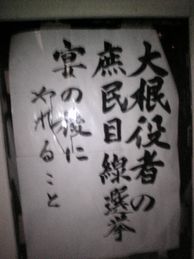 大根役者の
庶民目線選挙
宴の後に
やれること